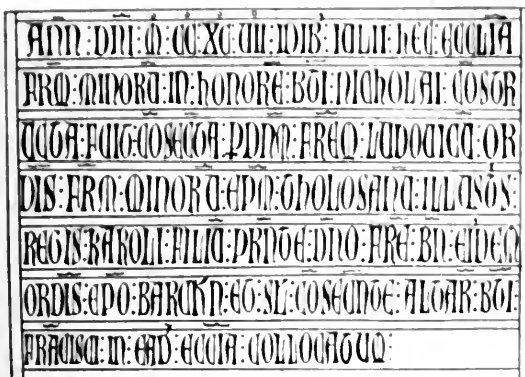 ANN : DNI : M : CC : XC : UII : IDIB : IULII : HEC : ECCLIA
FRM : MINORU : IN : HONORE : BTI : NICHOLAI : COSTR
UCTA : FUIT : COSECTA : P DNM : FREM : LUDOUICU : OR
DIS : FRM : MINORU : EPM : THOLOSANU : ILLUSTS :
REGIS : KAROLI : FILIU : PRNTE : DNO : FRE : BN : EIDEM
ORDIS : EPO : BARCHN : ET : SL : COSECNTE : ALTAR : BTI :
FRACISCI : IN : EAD : ECCIA : COLLOCATUM :